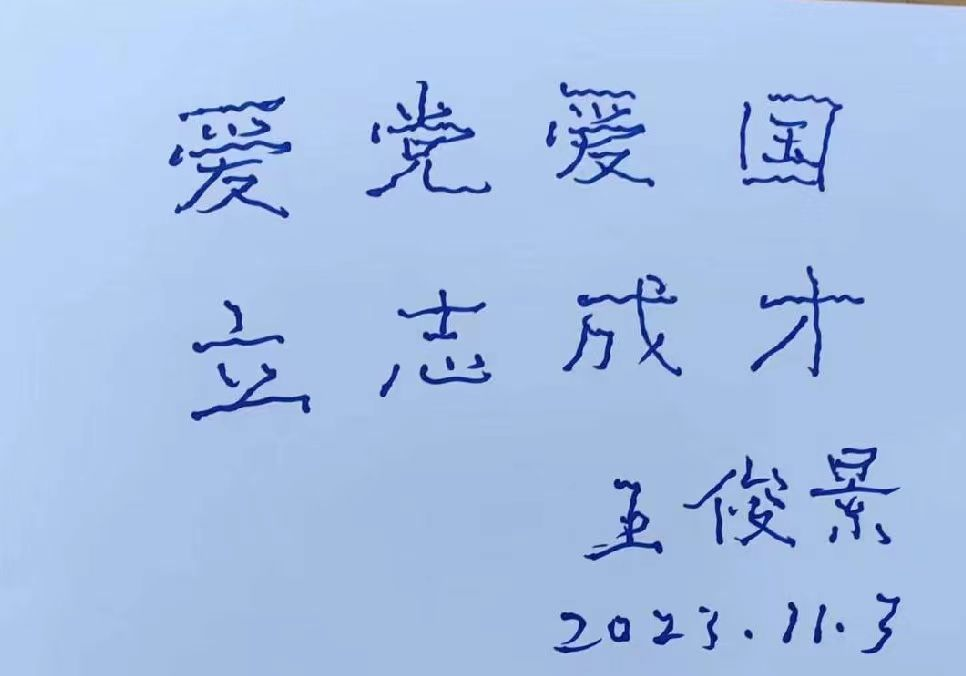 爱党爱国
立志成才
王俊景
2023.11.3